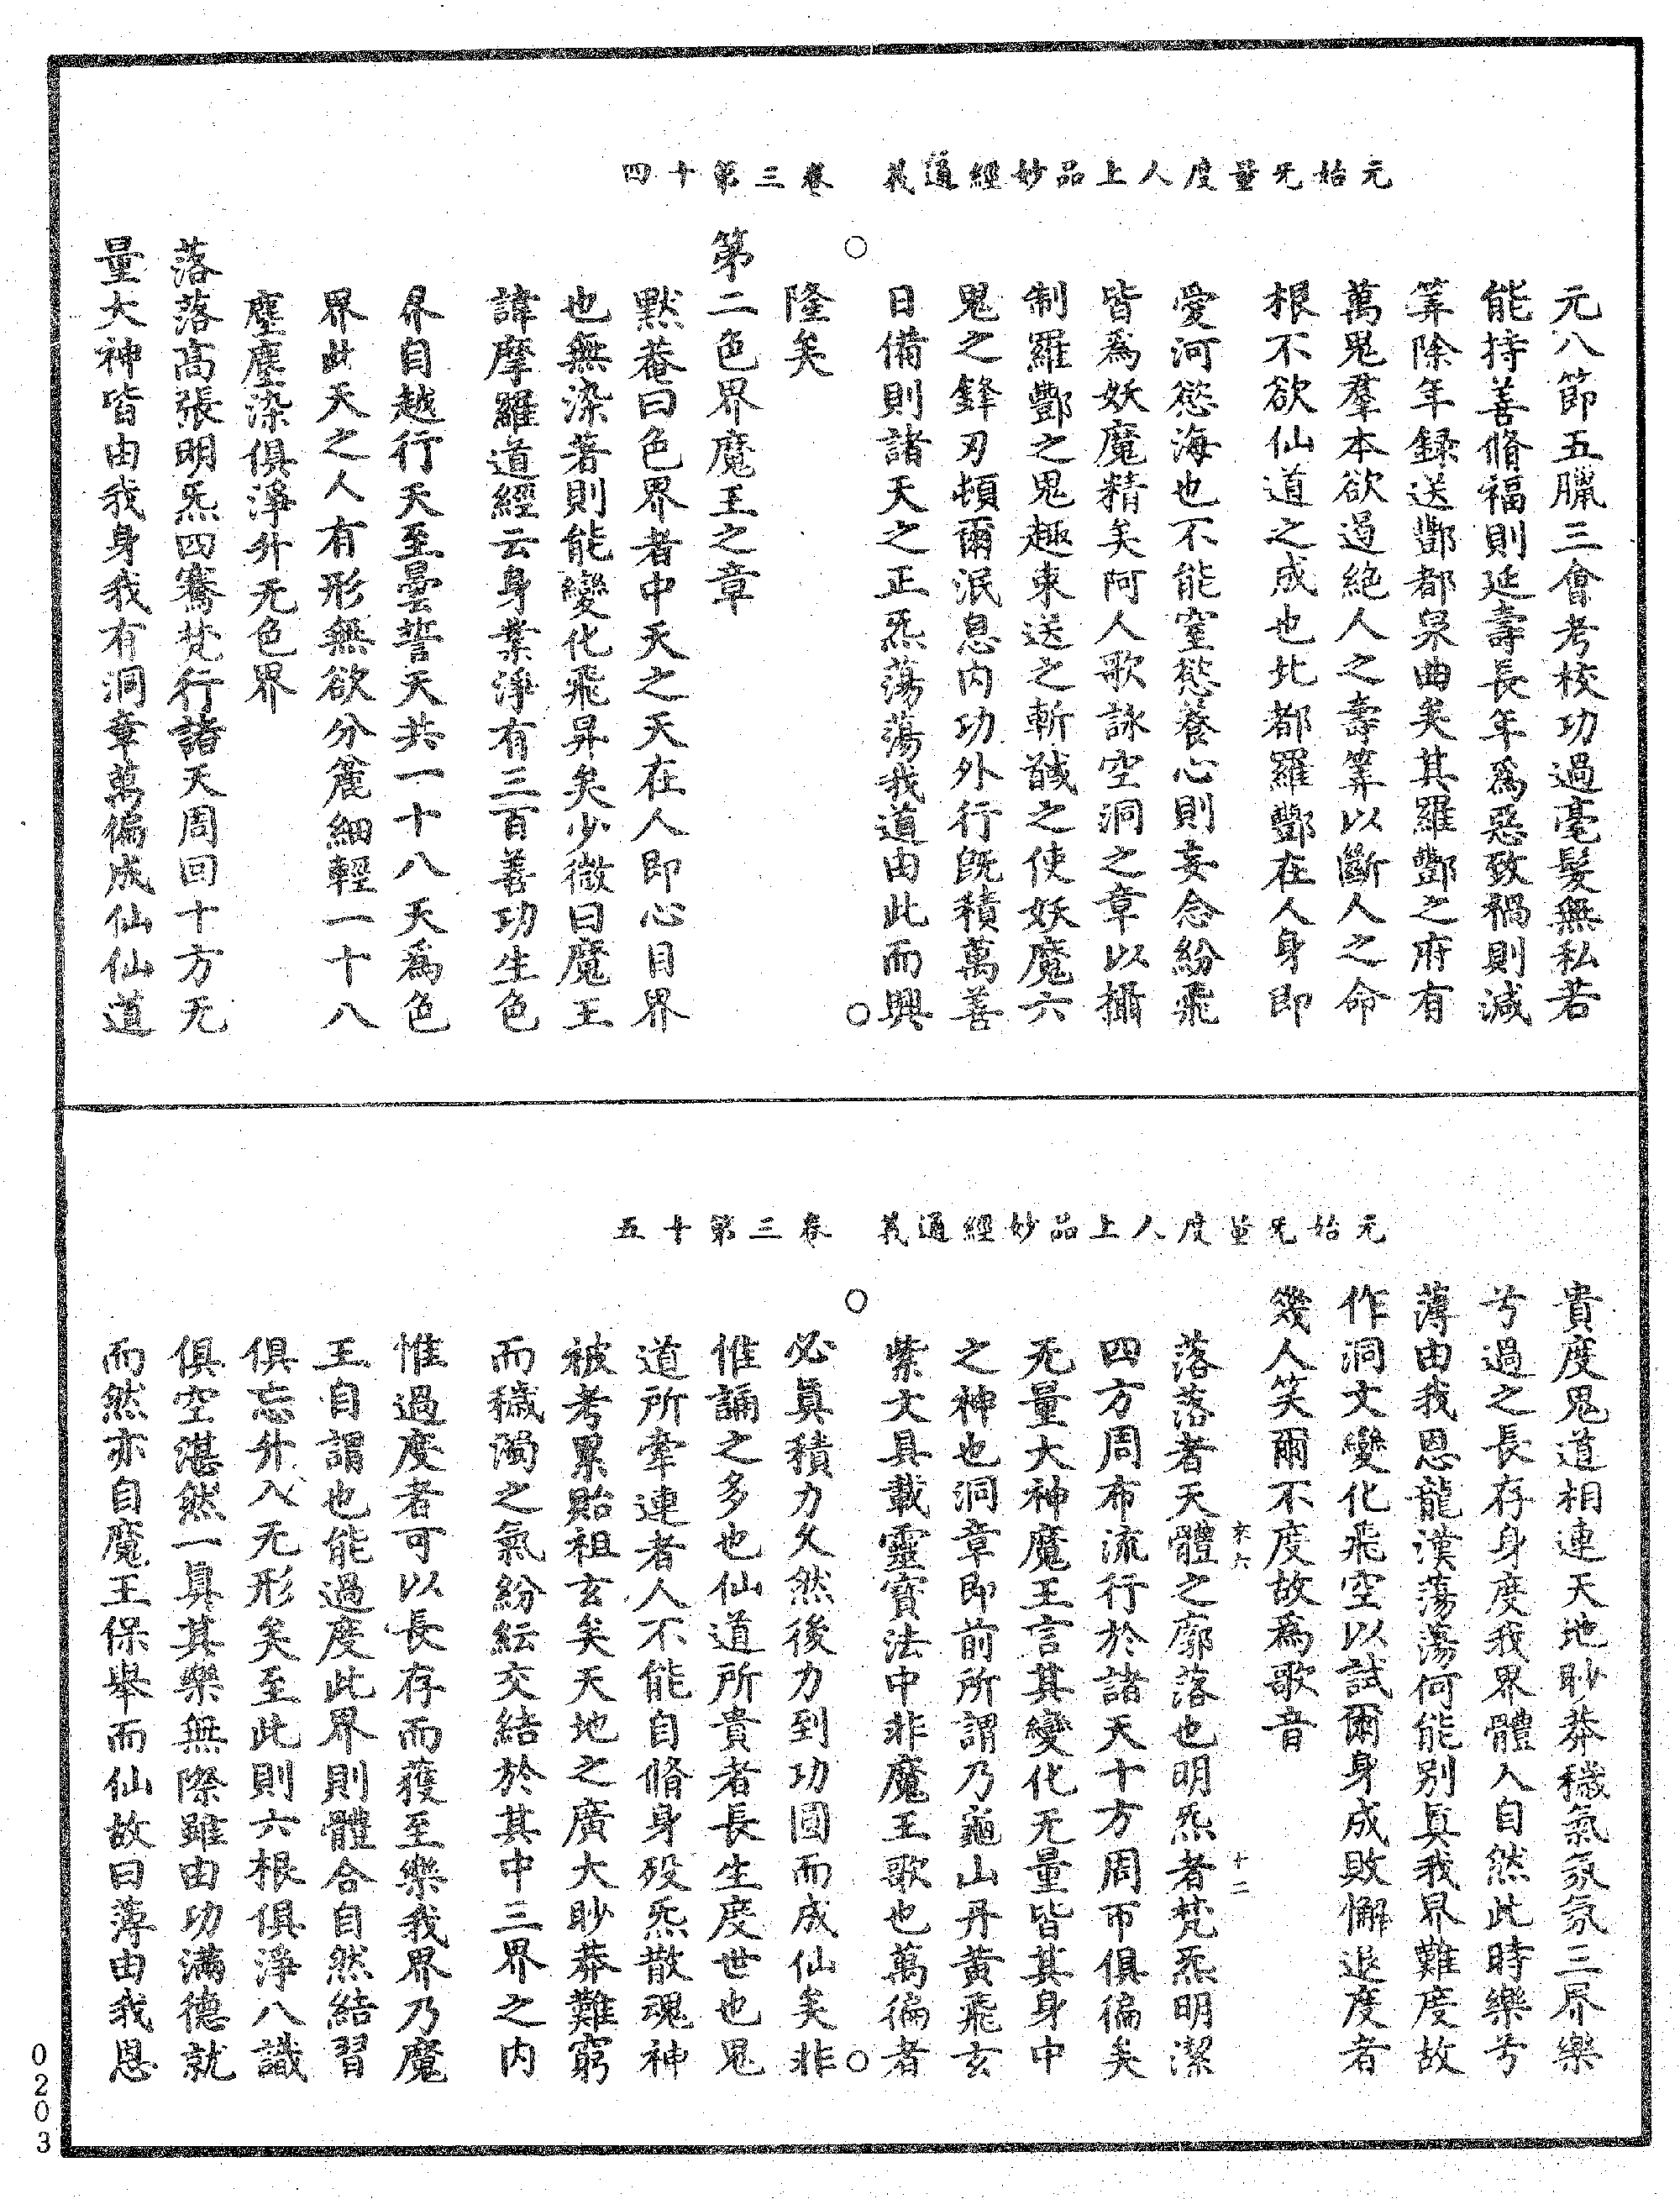 元始无量度人上品妙經通義　卷三第十四
元八節五臘三會考校功過毫髮無私若
能持善脩福則延壽長年爲惡致禍則減
筭除年録送酆都泉曲矣其羅酆之府有
萬鬼羣本欲遏絶人之壽筭以斷人之命
根不欲仙道之成也北都羅酆在人身即
愛河慾海也不能窒慾養心則妄念紛飛
皆爲妖魔精矣阿人歌詠空洞之章以攝
制羅酆之鬼趣束送之斬馘之使妖魔六
鬼之鋒刃頓爾泯息内功外行旣積萬善
日備則諸天之正炁蕩蕩我道由此而興
隆矣
第二色界魔王之章
默菴曰色界者中天之天在人即心目界
也無染著則能變化飛昇矣少微曰魔王
諱摩羅道經云身業淨有三百善功生色
界自越行天至曇誓天共一十八天爲色
界此天之人有形無欲分麄細輕一十八
塵塵染俱淨升无色界
落落高張明炁四騫梵行諸天周回十方无
量大神皆由我身我有洞章萬徧成仙仙道
元始无量度人上品妙經通義　卷三第十五
貴度鬼道相連天地眇莽穢氣氛氛三界樂
兮過之長存身度我界體入自然此時樂兮
薄由我恩龍漢蕩蕩何能別真我界難度故
作洞文變化飛空以試爾身成敗懈退度者
幾人笑爾不度故爲歌音
落落者天體之廓落也明炁者梵炁明潔
四方周布流行於諸天十方周帀俱徧矣
无量大神魔王言其變化无量皆其身中
之神也洞章即前所謂乃龜山丹黄飛玄
紫文具載靈寶法中非魔王歌也萬徧者
必眞積力久然後力到功圓而成仙矣非
惟誦之多也仙道所貴者長生度世也鬼
道所牽連者人不能自脩身殁炁散魂神
被考累貽祖玄矣天地之廣大眇莽難窮
而穢濁之氣紛紜交結於其中三界之内
惟過度者可以長存而獲至樂我界乃魔
王自謂也能過度此界則體合自然結習
俱忘升入无形矣至此則六根俱淨八識
俱空湛然一眞其樂無際雖由功滿德就
而然亦自魔王保舉而仙故曰薄由我恩
十二
0203